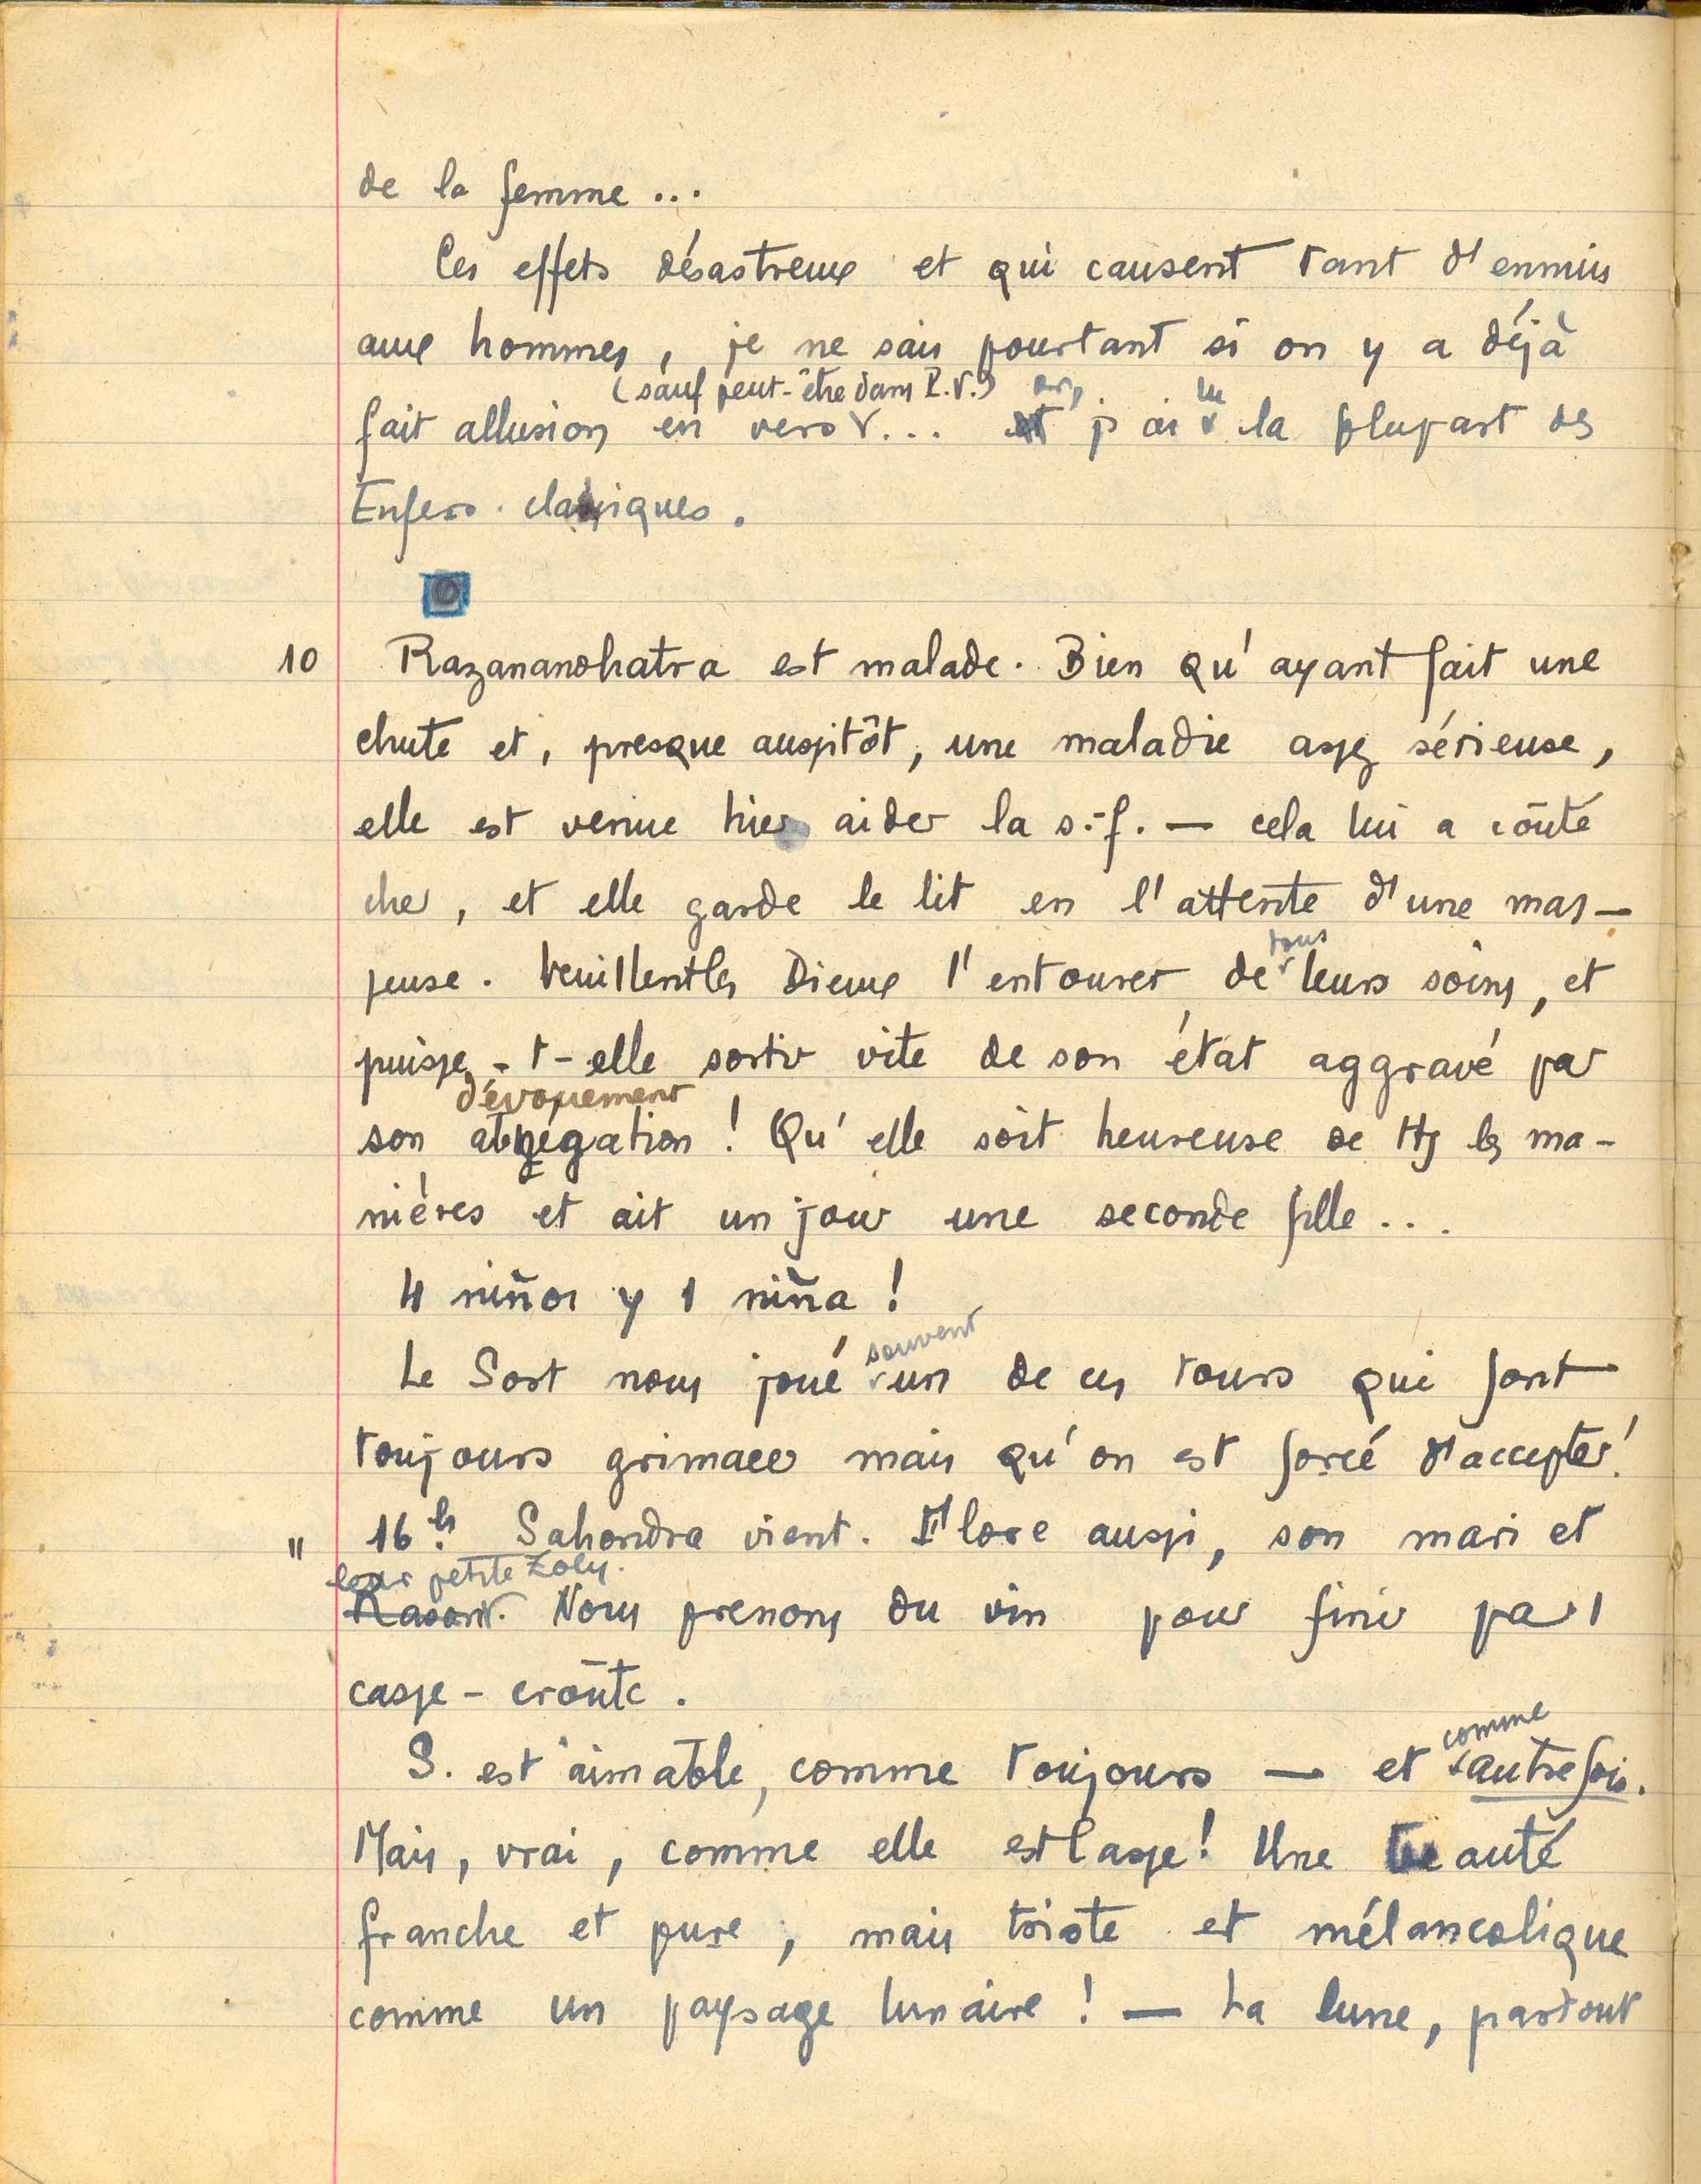 de la femme ...
Ces effets désastreux et qui causent tant d'ennuis
aux hommes, je ne sais pourtant si on y a déjà
(sauf peut-être dans P.V.) or, lu
fait allusion en vers ... et j'ai la plupart des
Enfers classiques.
10 Razanandhatra est malade. Bien qu'ayant fait une
chute et, presque aussitôt, une maladie assez sérieuse,
elle est venue hier aider la s.-f. — cela lui a coûté
cher, et elle garde le lit en l'attente d'une mas-
tous
seuse. Veuillent les Dieux l'entourer de leurs soins, et
puisse-t-elle sortir vite de son état aggravé par
dévouement
son abnégation ! Qu'elle soit heureuse de ttes les ma-
nières et ait un jour une seconde fille ...
4 niños y 1 niña !
souvent
Le Sort nous joue un de ces tours qui font
toujours grimacer mais qu'on est forcé d'accepter !
" 16h. Sahondra vient. Flore aussi, son mari et
leur petite Zoly.
Nous prenons du vin pour finir par 1
casse-croûte.
comme
S. est aimable, comme toujours — et autrefois.
Mais, vrai, comme elle est lasse ! Une beauté
franche et pure, mais triste et mélancolique
comme un paysage lunaire ! — La lune, partout